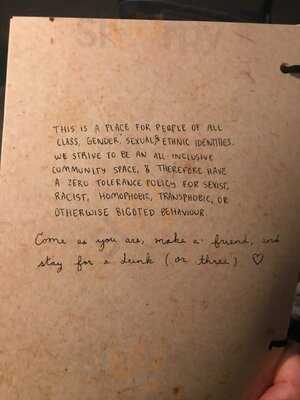 THIS IS A PLACE FOR PEOPLE OF ALL
CLASS, GENDER, SEXUAL, & ETHNIC IDENTITIES.
WE STRIVE TO BE AN ALL-INCLUSIVE
COMMUNITY SPACE, & THEREFORE HAVE
A ZERO TOLERANCE POLICY FOR SEXIST,
RACIST, HOMOPHOBIC, TRANSPHOBIC, OR
OTHERWISE BIGOTED BEHAVIOUR.
Come as you are, make a friend, and
stay for a drink (or three) ♡